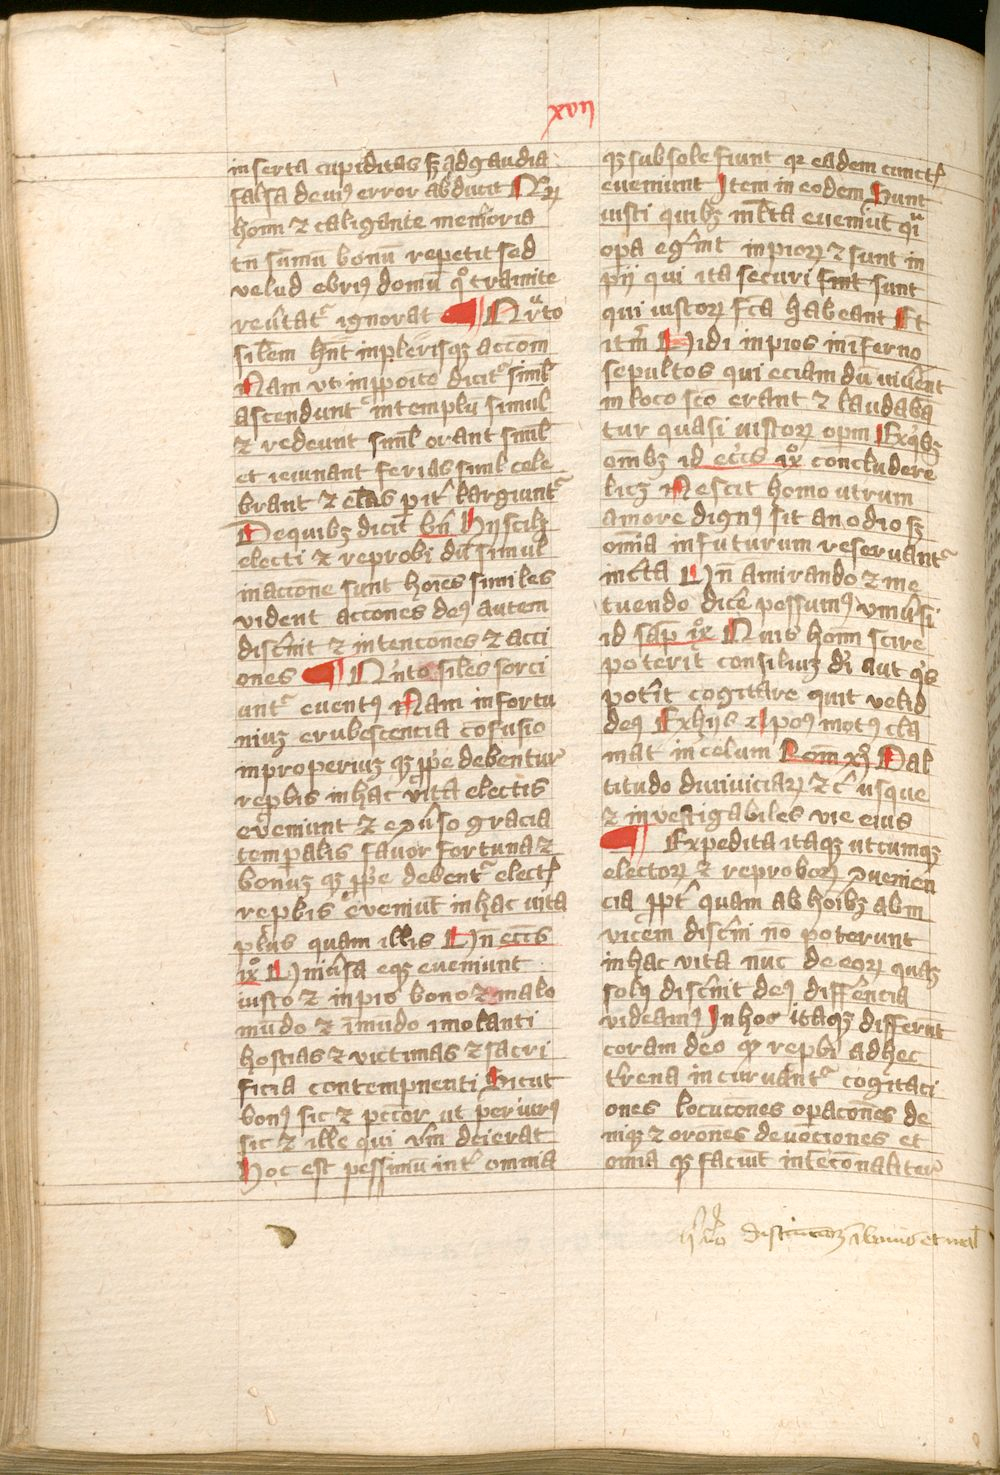 xvii
inserta cupiditas sꝫ ad gaudia
falsa deuiꝰ error abducit
hom̄ ⁊ caligante memoria
tn̄ sūmū bonū repetit sed
velud ebriꝰ domū qͦ tramite
reuertatᷣ ignorat ¶
silem hn̄t in plerisqꝫ accom̄
Nam vt in ppoito dicitᷣ siml
ascendunt in templū simul
⁊ redeunt siml orant siml
et ieiunant ferias siml cele
brant ⁊ elas largiuntᷣ
De quibꝫ dicit Hij scilꝫ
electi ⁊ reprobi dū simul
in accone sunt hoies similes
vident accones deꝰ autem
discnit ⁊ intencones ⁊ acci
ones ¶ siles sorci
untᷣ euentꝰ Nam infortu
niuꝫ erubescencia cōfusio
inproperiuꝫ qꝫ ppe debentur
repbis in hac vita electis
eueniunt ⁊ e ꝯuso gracia
temporalis fauor fortuna ⁊
bonuꝫ qꝫ ppe debentᷣ elect
repbis eueniūt in hac uita
plus quam illis Vn̄ eccͥs
ixͦ Vniuͥsa eqꝫ eueniunt
iusto ⁊ inpio bono ⁊ malo
mūdo ⁊ īmūdo imolanti
hostias ⁊ victimas ⁊ sacri
ficia contempnenti Sicut
bonꝰ sic ⁊ pctor ut periurꝰ
sic ⁊ ille qui vm̄ deierat
Hoc est pessimū intͥ omnia
qꝫ sub sole fiunt qꝛ eadem cunct
eueniunt Item in eodem Sunt
iusti quibꝫ mlta eueniūt qͣ
opa egint inpioꝝ ⁊ sunt in
pij qui ita securi sint sunt
qui iustoꝝ fca habeant Et
itm̄ Vidi inpios in iferno
sepultos qui eciam dū viuēnt
in loco sco erant ⁊ laudaba
tur quasi iustoꝝ opm Ex qͥbꝫ
omibꝫ id eccͥs ixͦ concludere
licꝫ Nescit homo utrum
amore dignꝰ sit an odio sꝫ
omīa in futurum reseruantᷣ
incͥta Vn̄ amirando ⁊ me
tuendo dicē possumꝰ vniuͥsi
id sap̄ ixͦ Quis hom̄ scire
poterit consiliuꝫ dͥi aut qͥs
potīt cogitare quit velid
deꝰ Ex hijs ⁊ motꝰ cla
mat in celum Rom̄ xjͦ O al
titudo diuiuiciaꝝ ⁊ c̄ usque
⁊ inuestigabiles vie eius
¶ Expedita itaqꝫ utcumqꝫ
electoꝝ ⁊ reproboꝝ ꝯueniēn
cia ppt quam ab hoibꝫ abin
uicem discīni nō poterunt
in hac vita nūc de eoꝝ quaꝫ
solꝰ discnit deꝰ diffēncia
videamꝰ In hoc itaqꝫ differūt
coram deo qꝫ repbi ad hec
trena incuruantᷣ cogitaci
ones locucōnes opacōnes de
niqꝫ ⁊ orones deuociones et
omīa qꝫ faciūt intēconaliter